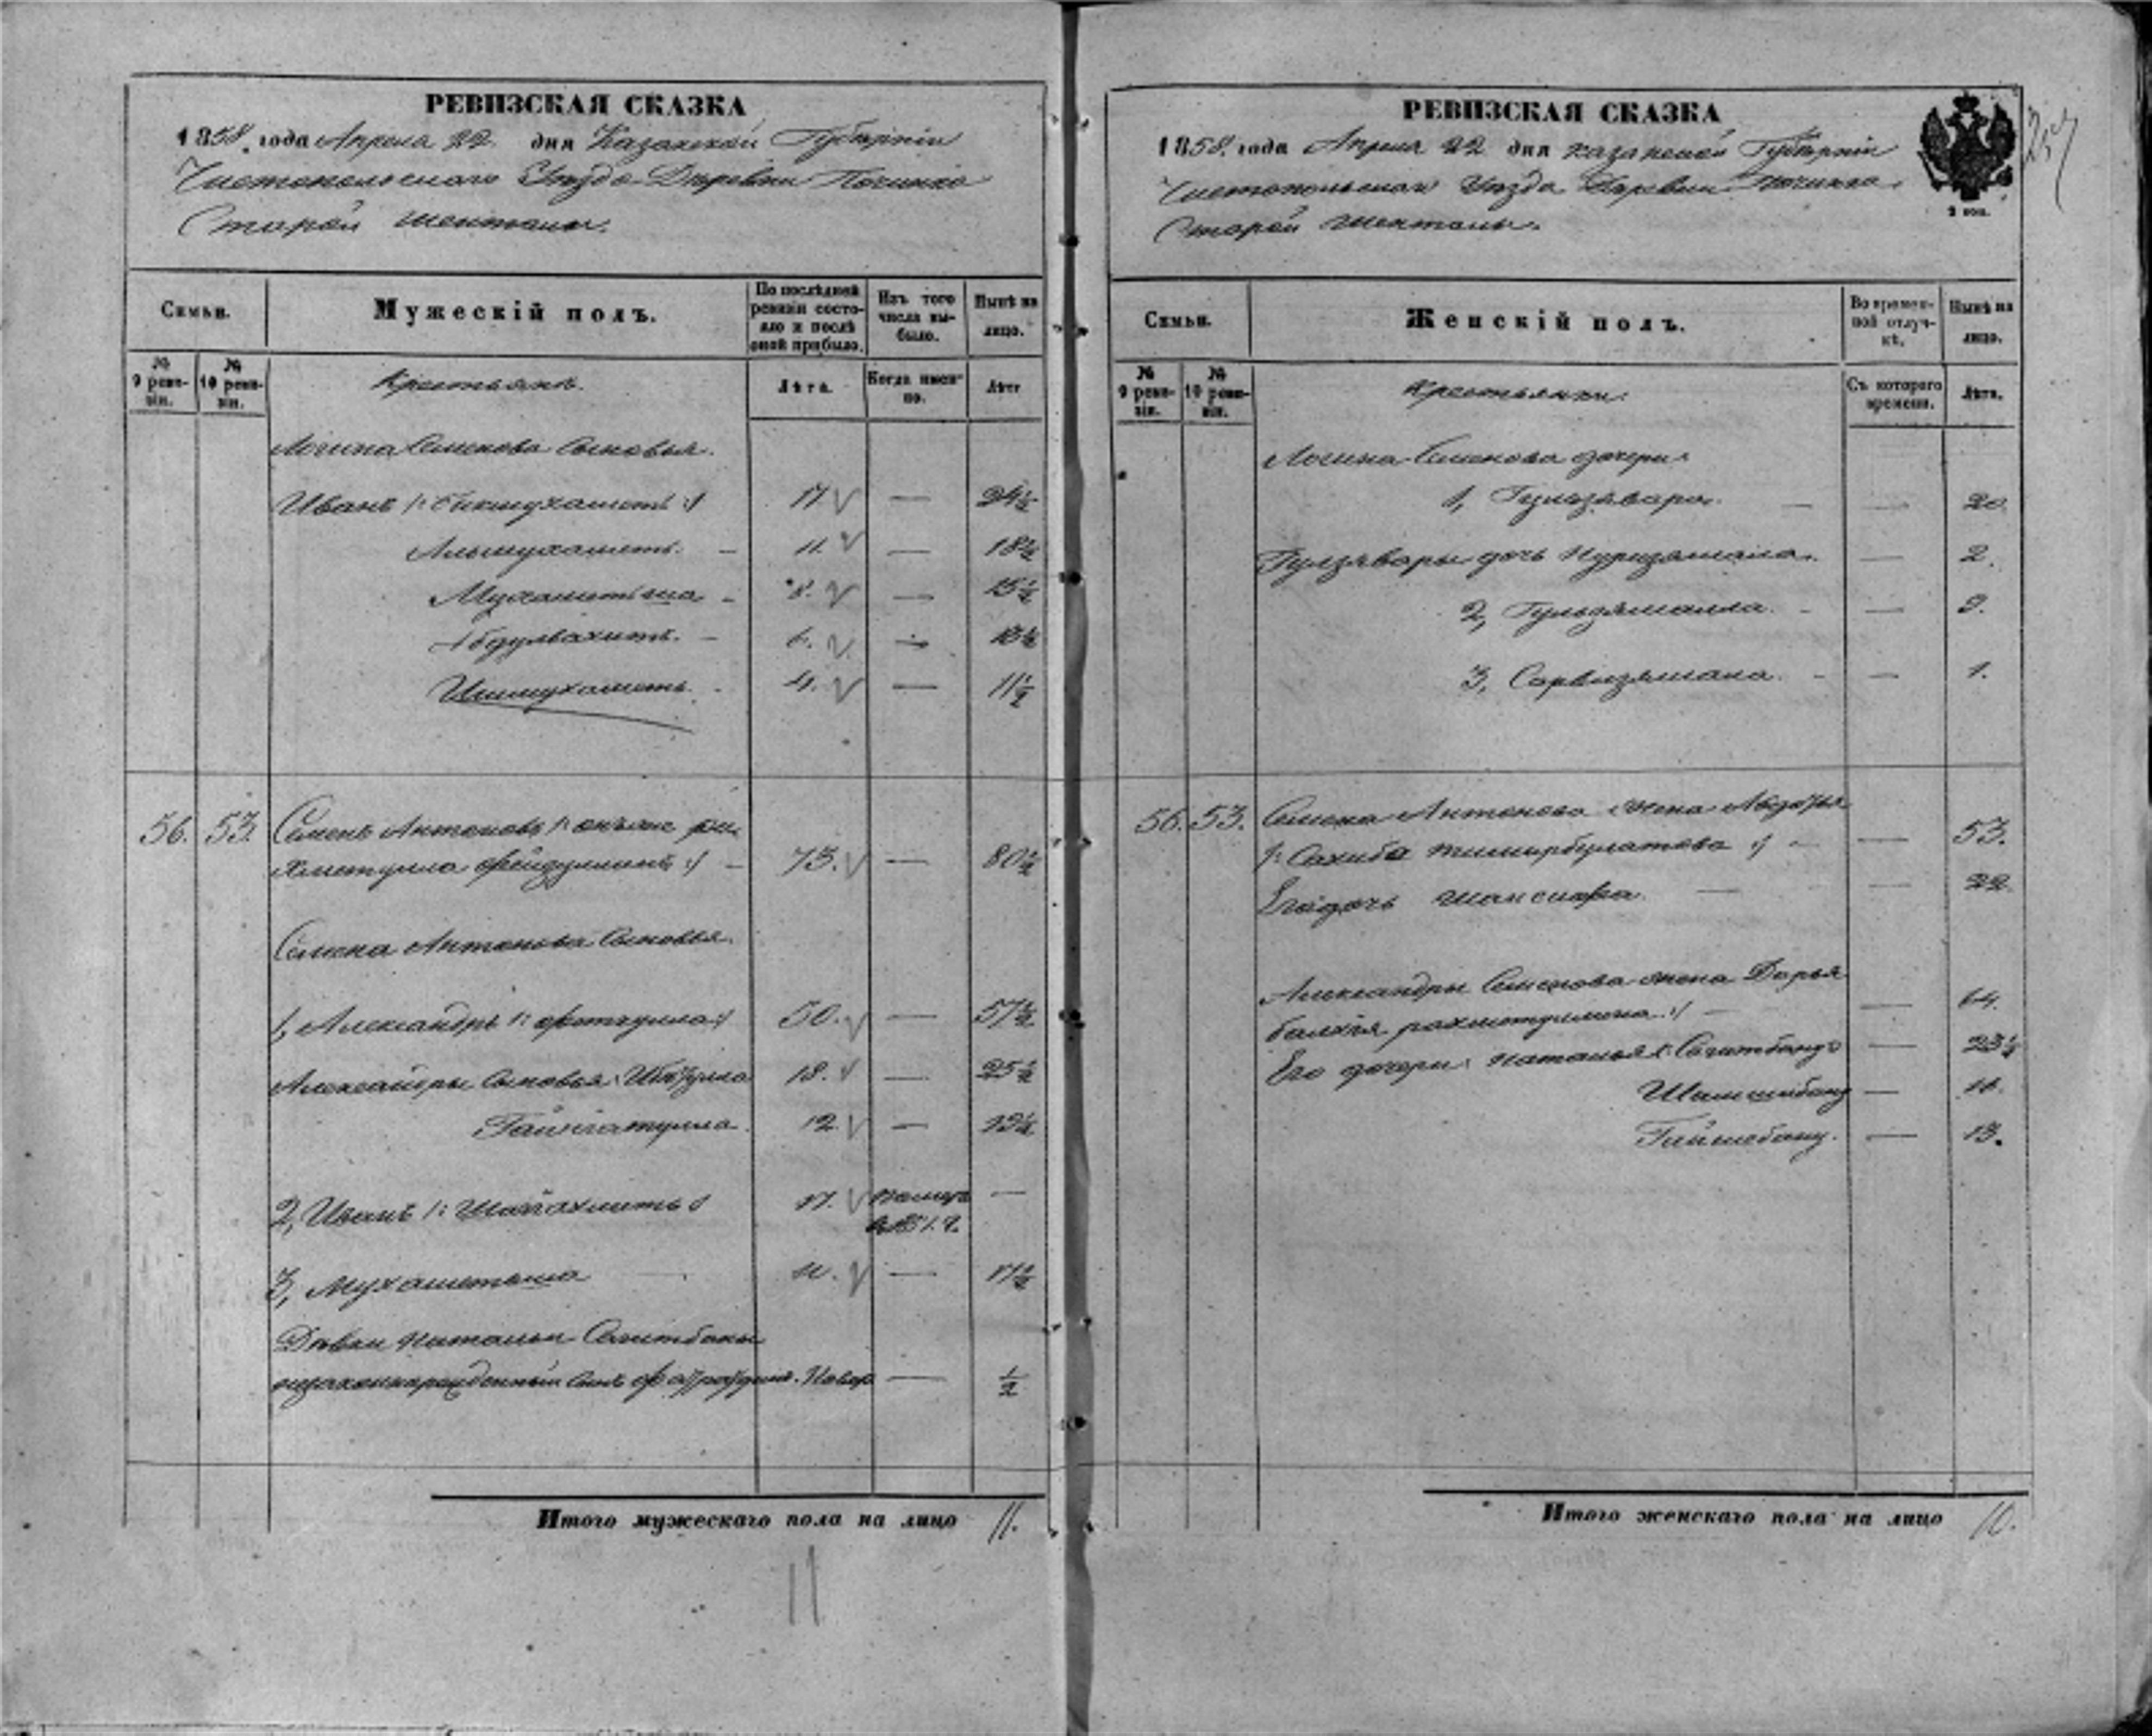 РЕВИЗСКАЯ СКАЗКА
1858. года Апреля 22. дня Казанской Губернiи
Чистопольскаго Уѣзда Деревни Починка
Старой Шенталы.
Семьи.
Мужескiй полъ.
По послѣдней ревизiи состояло и послѣ оной прибыло.
Изъ того числа выбыло.
Нынѣ на лицо.
№ 9 ревизiи.
№ 10 ревизiи.
Крестьяне.
Лѣта.
Когда именно.
Лѣта
Логина Семенова Сыновья.
Иванъ /: Бикмухаметъ :/ 17. — 24½
Альмухаметъ. — 11. — 18½
Мухаметша. — 8. — 15½
Абдулвахитъ. — 6. — 13½
Ишмухаметъ. 4. — 11½
56. 53. Семенъ Антоновъ /: онъже ра
хметулла Фейдуллинъ :/ — 73. — 80½
Семена Антонова Сыновья.
1, Александръ /: Фаткулла :/ 50. — 57½
Александры Сыновья: 18. — 25½
12.
2, Иванъ /: Шагiахметъ :/ 17. помер —
в 1851. г.
3, Мухаметша — 11. — 17½
Дѣвки Натальи Сагитбаны
незаконнорожденный Сынъ Новор. — ½
Итого мужескаго пола на лицо 11.
11
РЕВИЗСКАЯ СКАЗКА
1858. года Апреля 22 дня Казанской Губернiи
Чистопольскаго Уѣзда Деревни Починка.
Старой Шенталы.
2 коп.
Семьи.
Женскiй полъ.
Во временной отлучкѣ.
Нынѣ на лицо.
№ 9 ревизiи.
№ 10 ревизiи.
Крестьянки.
Съ котораго времени.
Лѣта.
Логина Семенова дочери
1, Гульзявара. — — 20.
Гулзявары дочь Нуризямала. — 2.
2, Гульзямала. — — 9.
3, Сарвизямала. — — 1.
56. 53. Семена Антонова жена Авдотья
/: Сахиба Тимирбулатова :/ — — 53.
Его дочь — — 22.
Александры Семенова жена Дарья
рахметуллина :/ — — 64.
Его дочери: Наталья /: Сагитбану — 23½
Шамсибану —
Гайшебану. — 13.
Итого женскаго пола на лицо 10.